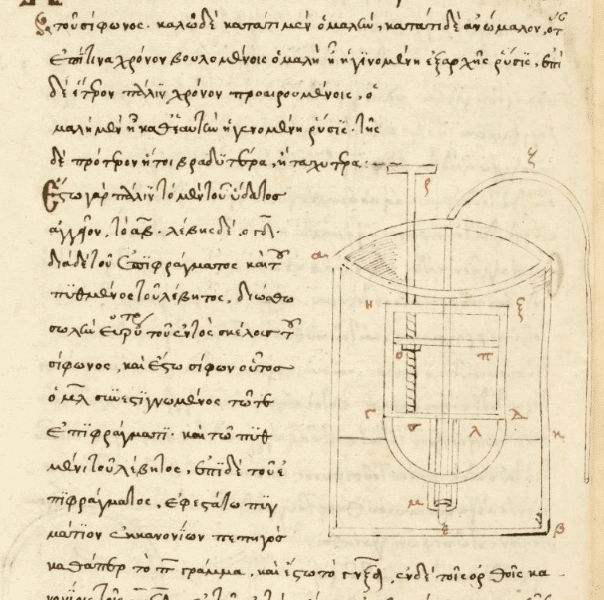 τοῦ σίφωνος. καλῶ δὲ κατά τι μὲν ὁμαλὴν, κατά τι δὲ ἀνώμαλον, ὅτι
ἐπί τινα χρόνον βουλομένοις ὁμαλὴ ἦ ἡ γινομένη ἐξαρχῆς ῥύσις, ἐπὶ
δὲ ἕτερον πάλιν χρόνον προαιρουμένοις, ὁ
μαλὴ μὲν ἦ καθ' ἑαυτὴν ἡ γενομένη ῥύσις. τῆς
δὲ πρότερον ἤτοι βραδυτέρα, ἢ ταχυτέρα:
Ἔστω γὰρ πάλιν τὸ μὲν τοῦ ὕδατος
ἀγγεῖον, τὸ αβ. λέβης δὲ, ὁ γδ.
διὰ δὲ τοῦ ἐπιφράγματος καὶ τοῦ
πυθμένος τοῦ λέβητος, διώσθω
σωλὴν εὐρύτερος τοῦ ἐντὸς σκέλους τοῦ
σίφωνος, καὶ ἔξω σίφων οὗτος
ὁ μλ συνεστεγνωμένος τῷ τε
ἐπιφράγματι. καὶ τῷ πυθ
μένι τοῦ λέβητος, ἐπὶ δὲ τοῦ ἐ
πιφράγματος, ἐφεστάτω πηγ
μάτιον ἐκ κανονίων πεπηγὸς
καθάπερ τὸ π γράμμα, καὶ ἔστω τὸ γηξδ, ἐν δὲ τοῖς ὀρθοῖς κα
ζ
ρ
α
η
ξ
ο
π
γ
σ
λ
δ
κ
μ
ε
β